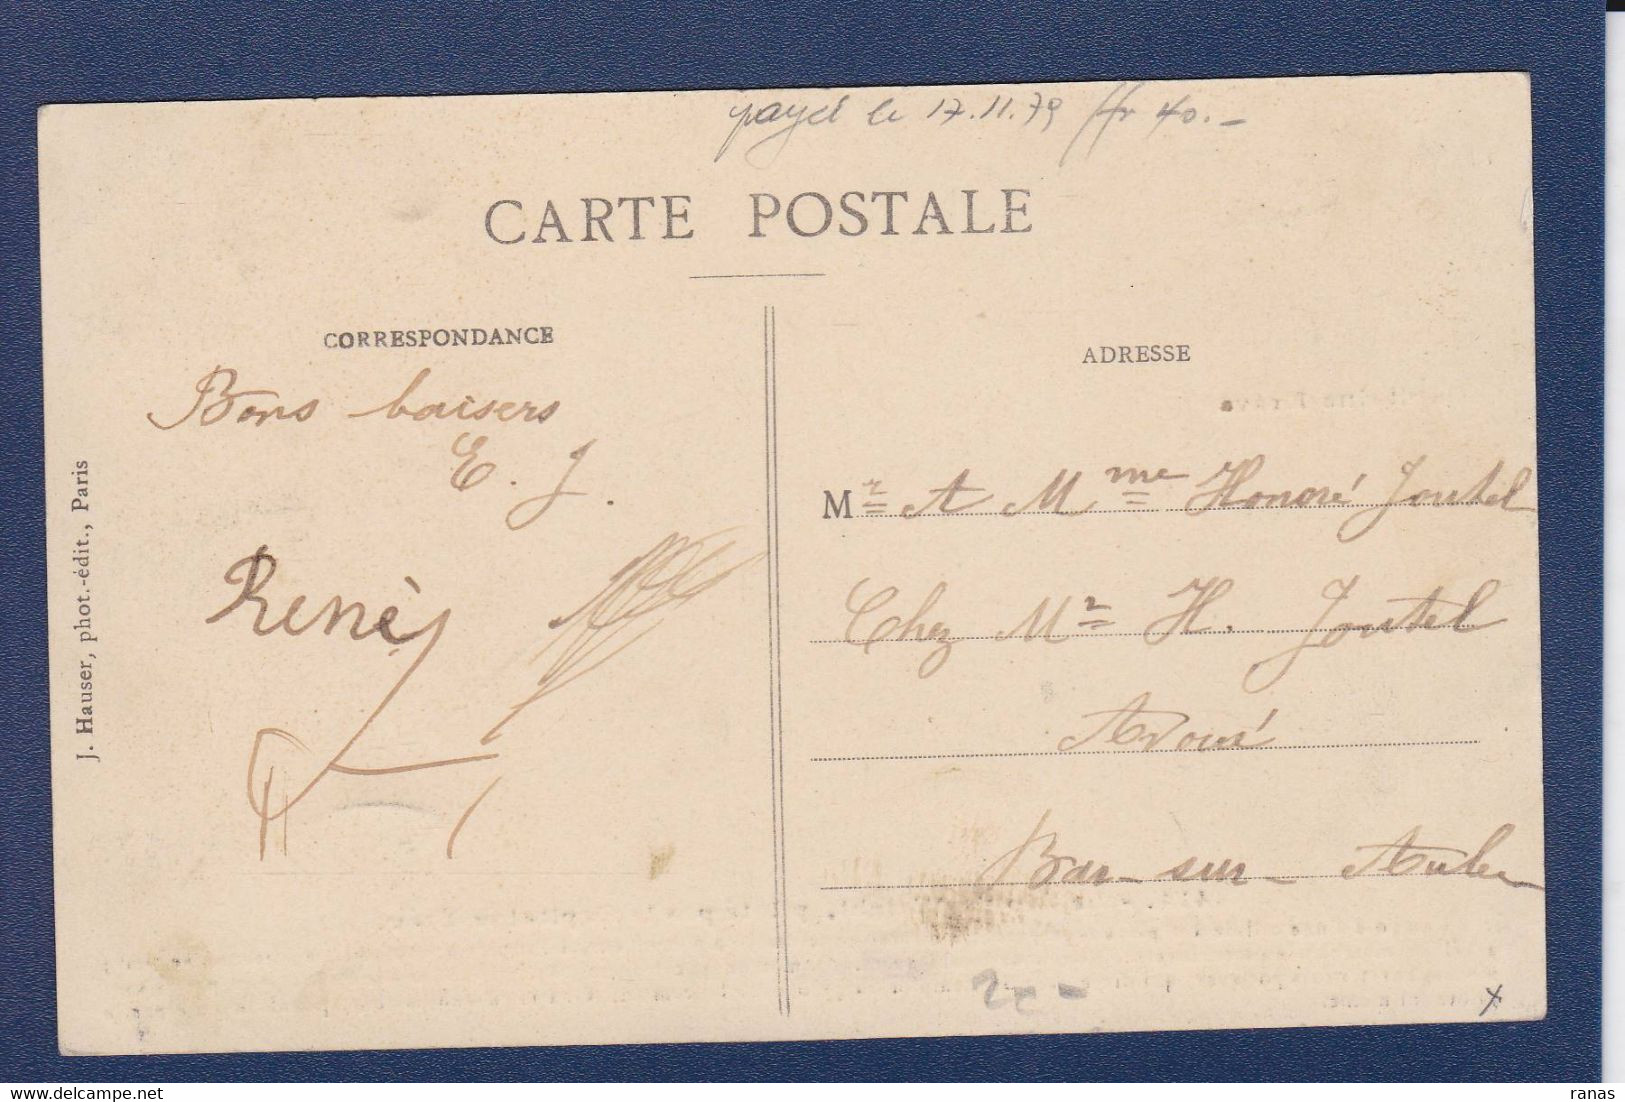 payé le 17.11.79 ffr 40.-
CARTE POSTALE
CORRESPONDANCE
Bons baisers
E. J.
René
J. Hauser, phot.-édit., Paris
ADRESSE
Mr et Mme Honoré Joutel
Chez Mr H. Joutel
Avoué
Bar-sur-Aube
x
ranas